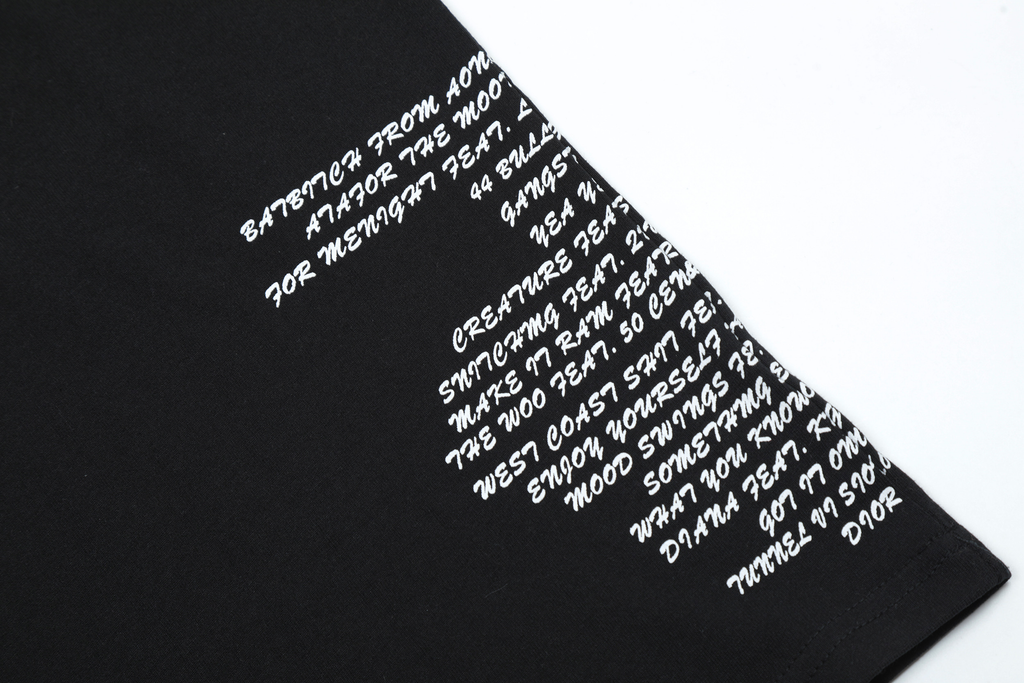 BATBITCH FROM AON
ATAFOR THE MOOT
FOR MENIGHT FEAT. L
44 BULL
GANGST
YEA Y
CREATURE FEAT
SNITCHMG FEAT. 2
MAKE IT RAM FEAR
THE WOO FEAT. 50 CEN
WEST COAST SHIT FE
ENJOY YOURSELF
MOOD SWINGS FE
SOMETHMG E
WHAT YOU KNOW
DIANA FEAT. KI
GOT IT OM
TUNNEL VI SIO
DIOR